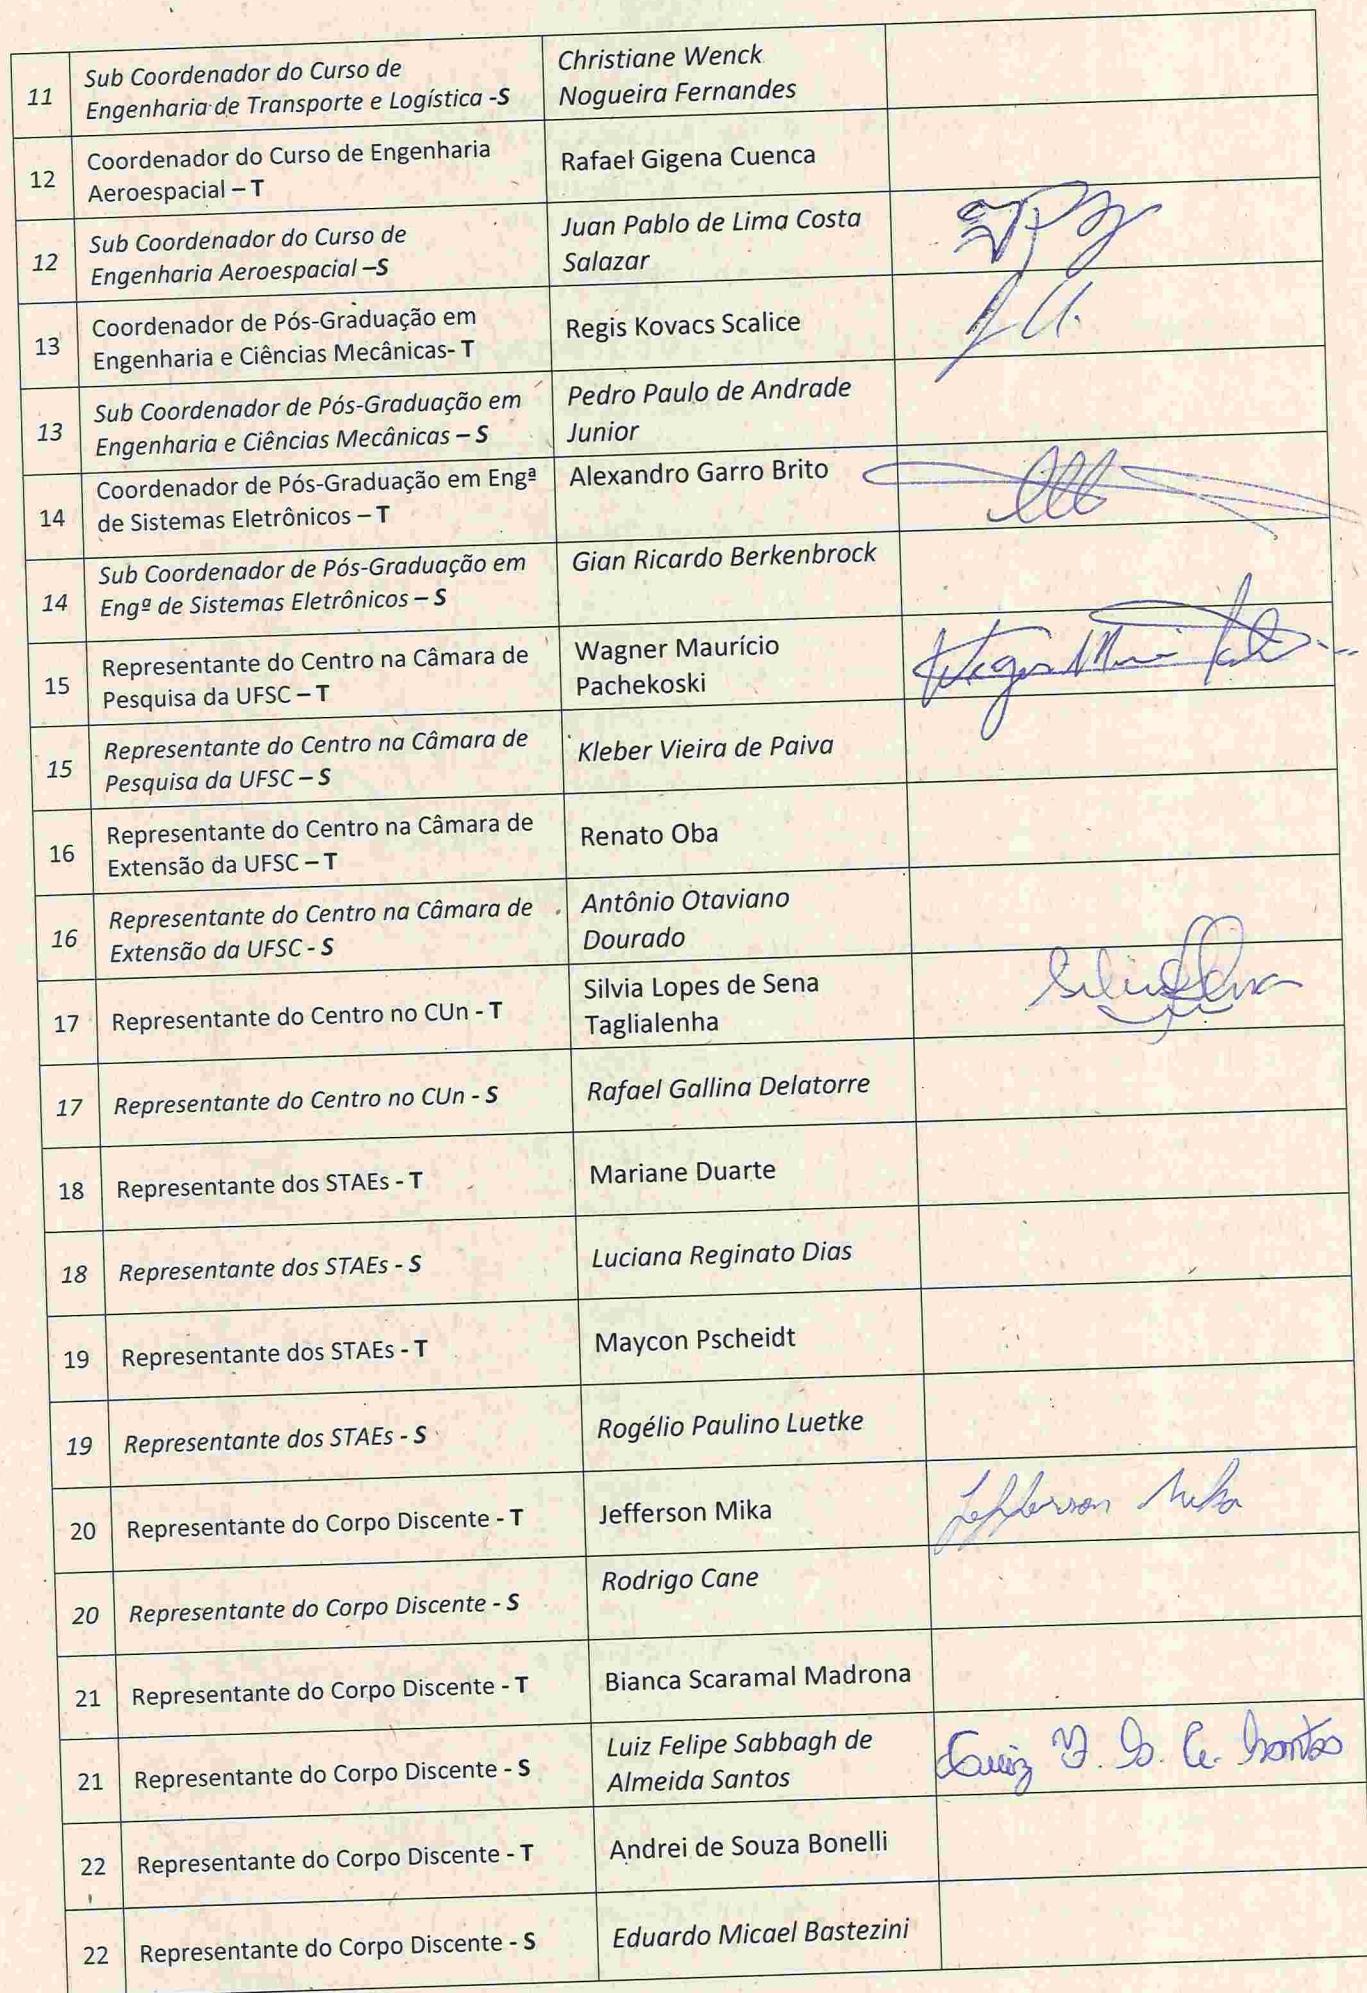 11
Sub Coordenador do Curso de
Engenharia de Transporte e Logística -S
Christiane Wenck
Nogueira Fernandes
12
Coordenador do Curso de Engenharia
Aeroespacial – T
Rafael Gigena Cuenca
12
Sub Coordenador do Curso de
Engenharia Aeroespacial –S
Juan Pablo de Lima Costa
Salazar
13
Coordenador de Pós-Graduação em
Engenharia e Ciências Mecânicas- T
Regis Kovacs Scalice
13
Sub Coordenador de Pós-Graduação em
Engenharia e Ciências Mecânicas – S
Pedro Paulo de Andrade
Junior
14
Coordenador de Pós-Graduação em Engª
de Sistemas Eletrônicos – T
Alexandro Garro Brito
14
Sub Coordenador de Pós-Graduação em
Engª de Sistemas Eletrônicos – S
Gian Ricardo Berkenbrock
15
Representante do Centro na Câmara de
Pesquisa da UFSC – T
Wagner Maurício
Pachekoski
15
Representante do Centro na Câmara de
Pesquisa da UFSC – S
Kleber Vieira de Paiva
16
Representante do Centro na Câmara de
Extensão da UFSC – T
Renato Oba
16
Representante do Centro na Câmara de
Extensão da UFSC - S
Antônio Otaviano
Dourado
17
Representante do Centro no CUn - T
Silvia Lopes de Sena
Taglialenha
17
Representante do Centro no CUn - S
Rafael Gallina Delatorre
18
Representante dos STAEs - T
Mariane Duarte
18
Representante dos STAEs - S
Luciana Reginato Dias
19
Representante dos STAEs - T
Maycon Pscheidt
19
Representante dos STAEs - S
Rogélio Paulino Luetke
20
Representante do Corpo Discente - T
Jefferson Mika
Jefferson Mika
20
Representante do Corpo Discente - S
Rodrigo Cane
21
Representante do Corpo Discente - T
Bianca Scaramal Madrona
21
Representante do Corpo Discente - S
Luiz Felipe Sabbagh de
Almeida Santos
Luiz F. S. A. Santos
22
Representante do Corpo Discente - T
Andrei de Souza Bonelli
22
Representante do Corpo Discente - S
Eduardo Micael Bastezini